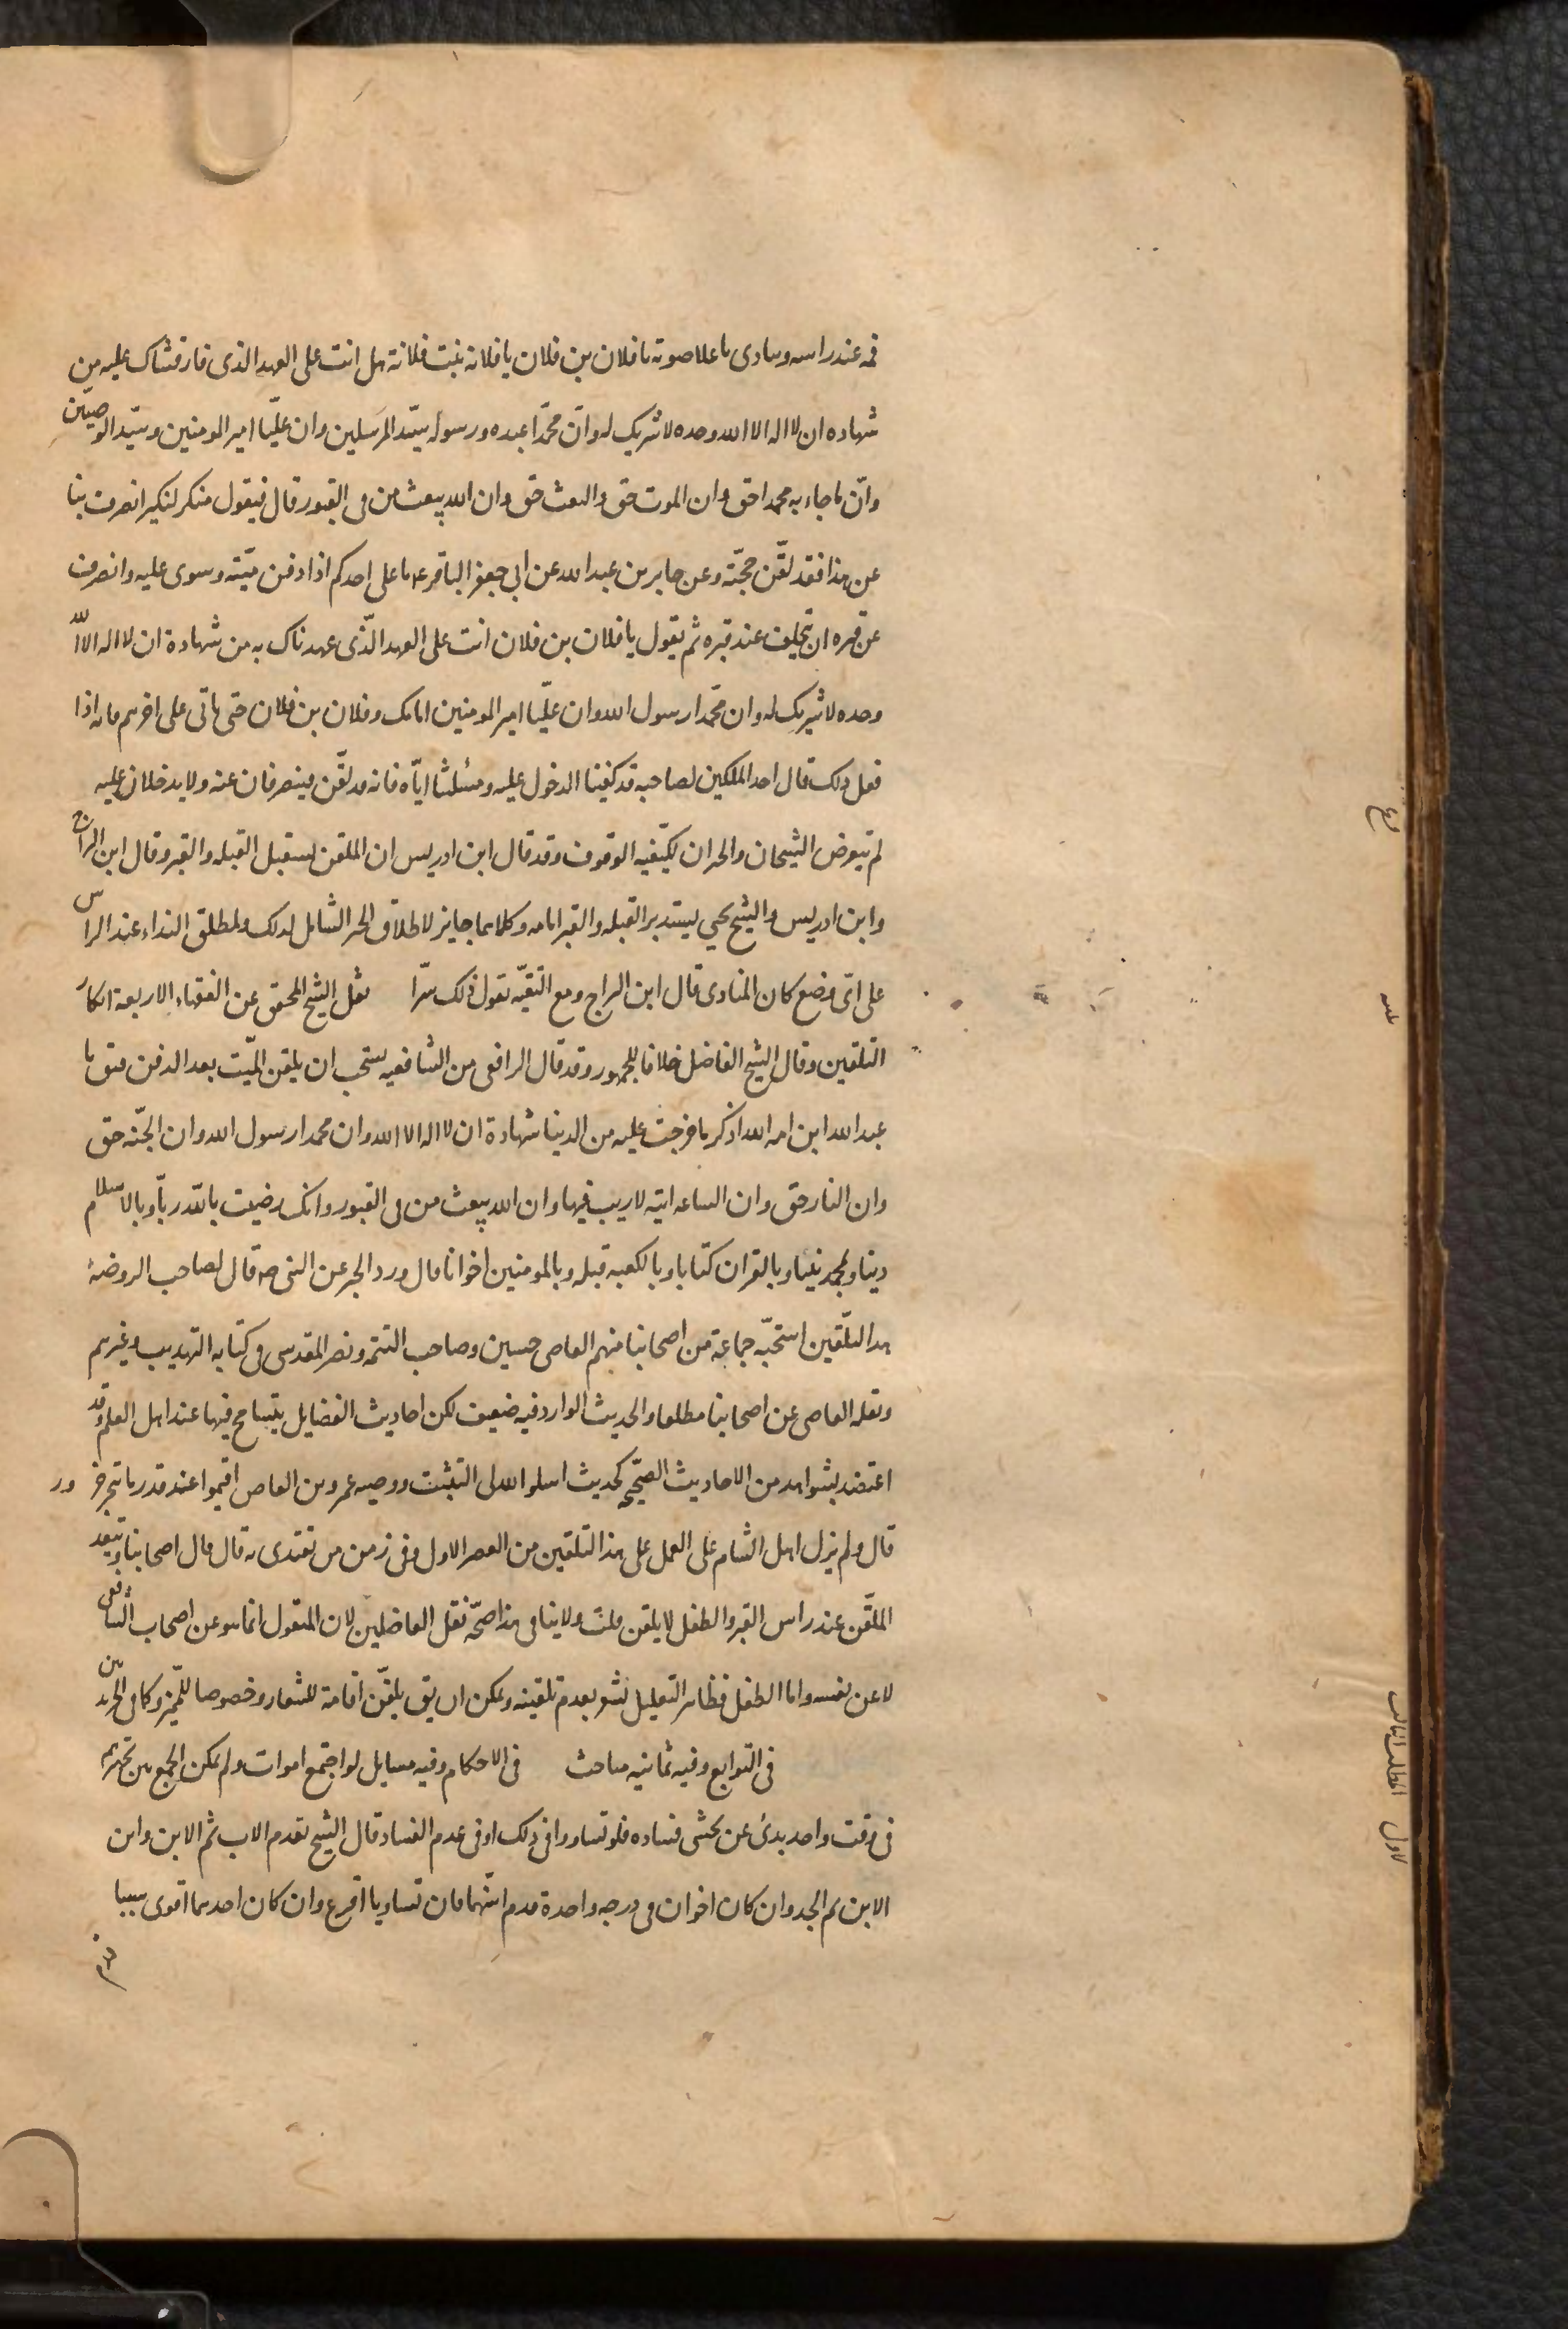 فمه عند راسه وينادى باعلا صوته يا فلان بن فلان يا فلانه بنت فلانة هل انت على العهد الذى فارقناك عليه من
شهاده ان لا اله الا الله وحده لا شريك له وانّ محمّدا عبده ورسوله سيّد المرسلين وان عليّا امير المومنين وسيّد الوصيّين
وانّ ما جاء به محمد احق وان الموت حق والبعث حق وان الله يبعث من فى القبور قال فيقول منكر لنكير انصرف بنا
عن هذا فقد لقّن حجّته وعن جابر بن عبد الله عن ابى جعفر الباقر ع ما على احدكم اذا دفن ميّته وسوى عليه وانصرف
عن قبره ان يتخلف عند قبره ثم يقول يا فلان بن فلان انت على العهد الّذى عهدناك به من شهادة ان لا اله الا الله
وحده لا شريك له وان محمّدا رسول الله وان عليّا امير المومنين امامك وفلان بن فلان حتى ياتى على اخرهم فانه اذا
فعل ذلك قال احد الملكين لصاحبه قد كفينا الدخول عليه ومسئلتنا ايّاه فانه قد لقّن فينصرفان عنه ولا يدخلان عليه
فرع
لم يتعرض الشيخان والخبران لكيفيه الوقوف وقد قال ابن ادريس ان الملقن يستقبل القبله والقبر وقال ابن البراج
وابن ادريس والشيخ يحيى يستدبر القبله والقبر امامه وكلاهما جايز لاطلاق الخبر الشامل لذلك ولمطلق النداء عند الراس
على اىّ وضع كان المنادى قال ابن البراج ومع التقيّه تقول ذلك سرّا نقل الشيخ المحقق عن الفقهاء الاربعة انكار
التلقين وقال الشيخ الفاضل خلافا للجمهور وقد قال الرافعى من الشافعيه يستحب ان يلقن الميّت بعد الدفن فيق يا
عبد الله ابن امه الله اذكر ما خرجت عليه من الدنيا شهادة ان لا اله الا الله وان محمدا رسول الله وان الجنّه حق
وان النار حق وان الساعه اتيه لا ريب فيها وان الله يبعث من فى القبور وانك رضيت بالله ربّا وبالاسلام
دينا وبمحمد نبيّا وبالقران كتابا وبالكعبه قبله وبالمومنين اخوانا قال ورد الخبر عن النبى صه قال لصاحب الروضة
هذا التلّقين استحبّه جماعة من اصحابنا منهم القاضى حسين وصاحب التتمه ونصر المقدسى فى كتابه التهذيب وغيرهم
ونقله القاضى عن اصحابنا مطلقا والحديث الوارد فيه ضعيف لكن احاديث الفضايل يتسامح فيها عند اهل العلم وقد
اعتضد بشواهد من الاحاديث الصحّيحه كحديث اسلوا الله له التثبيت ووصيه عمرو بن العاص اقيموا عند قدر ما تنحر جزور
قال ولم يزل اهل الشام على العمل على هذا التلقين من العصر الاول وفى زمن من تقتدى به قال قال اصحابنا ويقعد
الملقّن عند راس القبر والطفل لا يلقن قلت ولا ينافى هذا صحّة نقل الفاضلين لان المنقول انما هو عن اصحاب الشافعى
لا عن نفسه واما الطفل فظاهر التعليل يشعر بعدم تلقينه ويمكن ان يق يلقّن اقامة للشعار وخصوصا للمّيز وكما فى الجريدتين
المطلب الثالث فى التوابع وفيه ثمانيه مباحث الاول فى الاحكام وفيه مسايل لو اجتمع اموات ولم يمكن الجمع بين تجهيزهم
فى وقت واحد بدئ عن يخشى فساده فلو تساووا فى ذلك او فى عدم الفساد قال الشيخ يقدم الاب ثم الابن وابن
الابن ثم الجد وان كان اخوان فى درجه واحدة قدم اسّنهما فان تساويا اقرع وان كان احدهما اقوى سببا